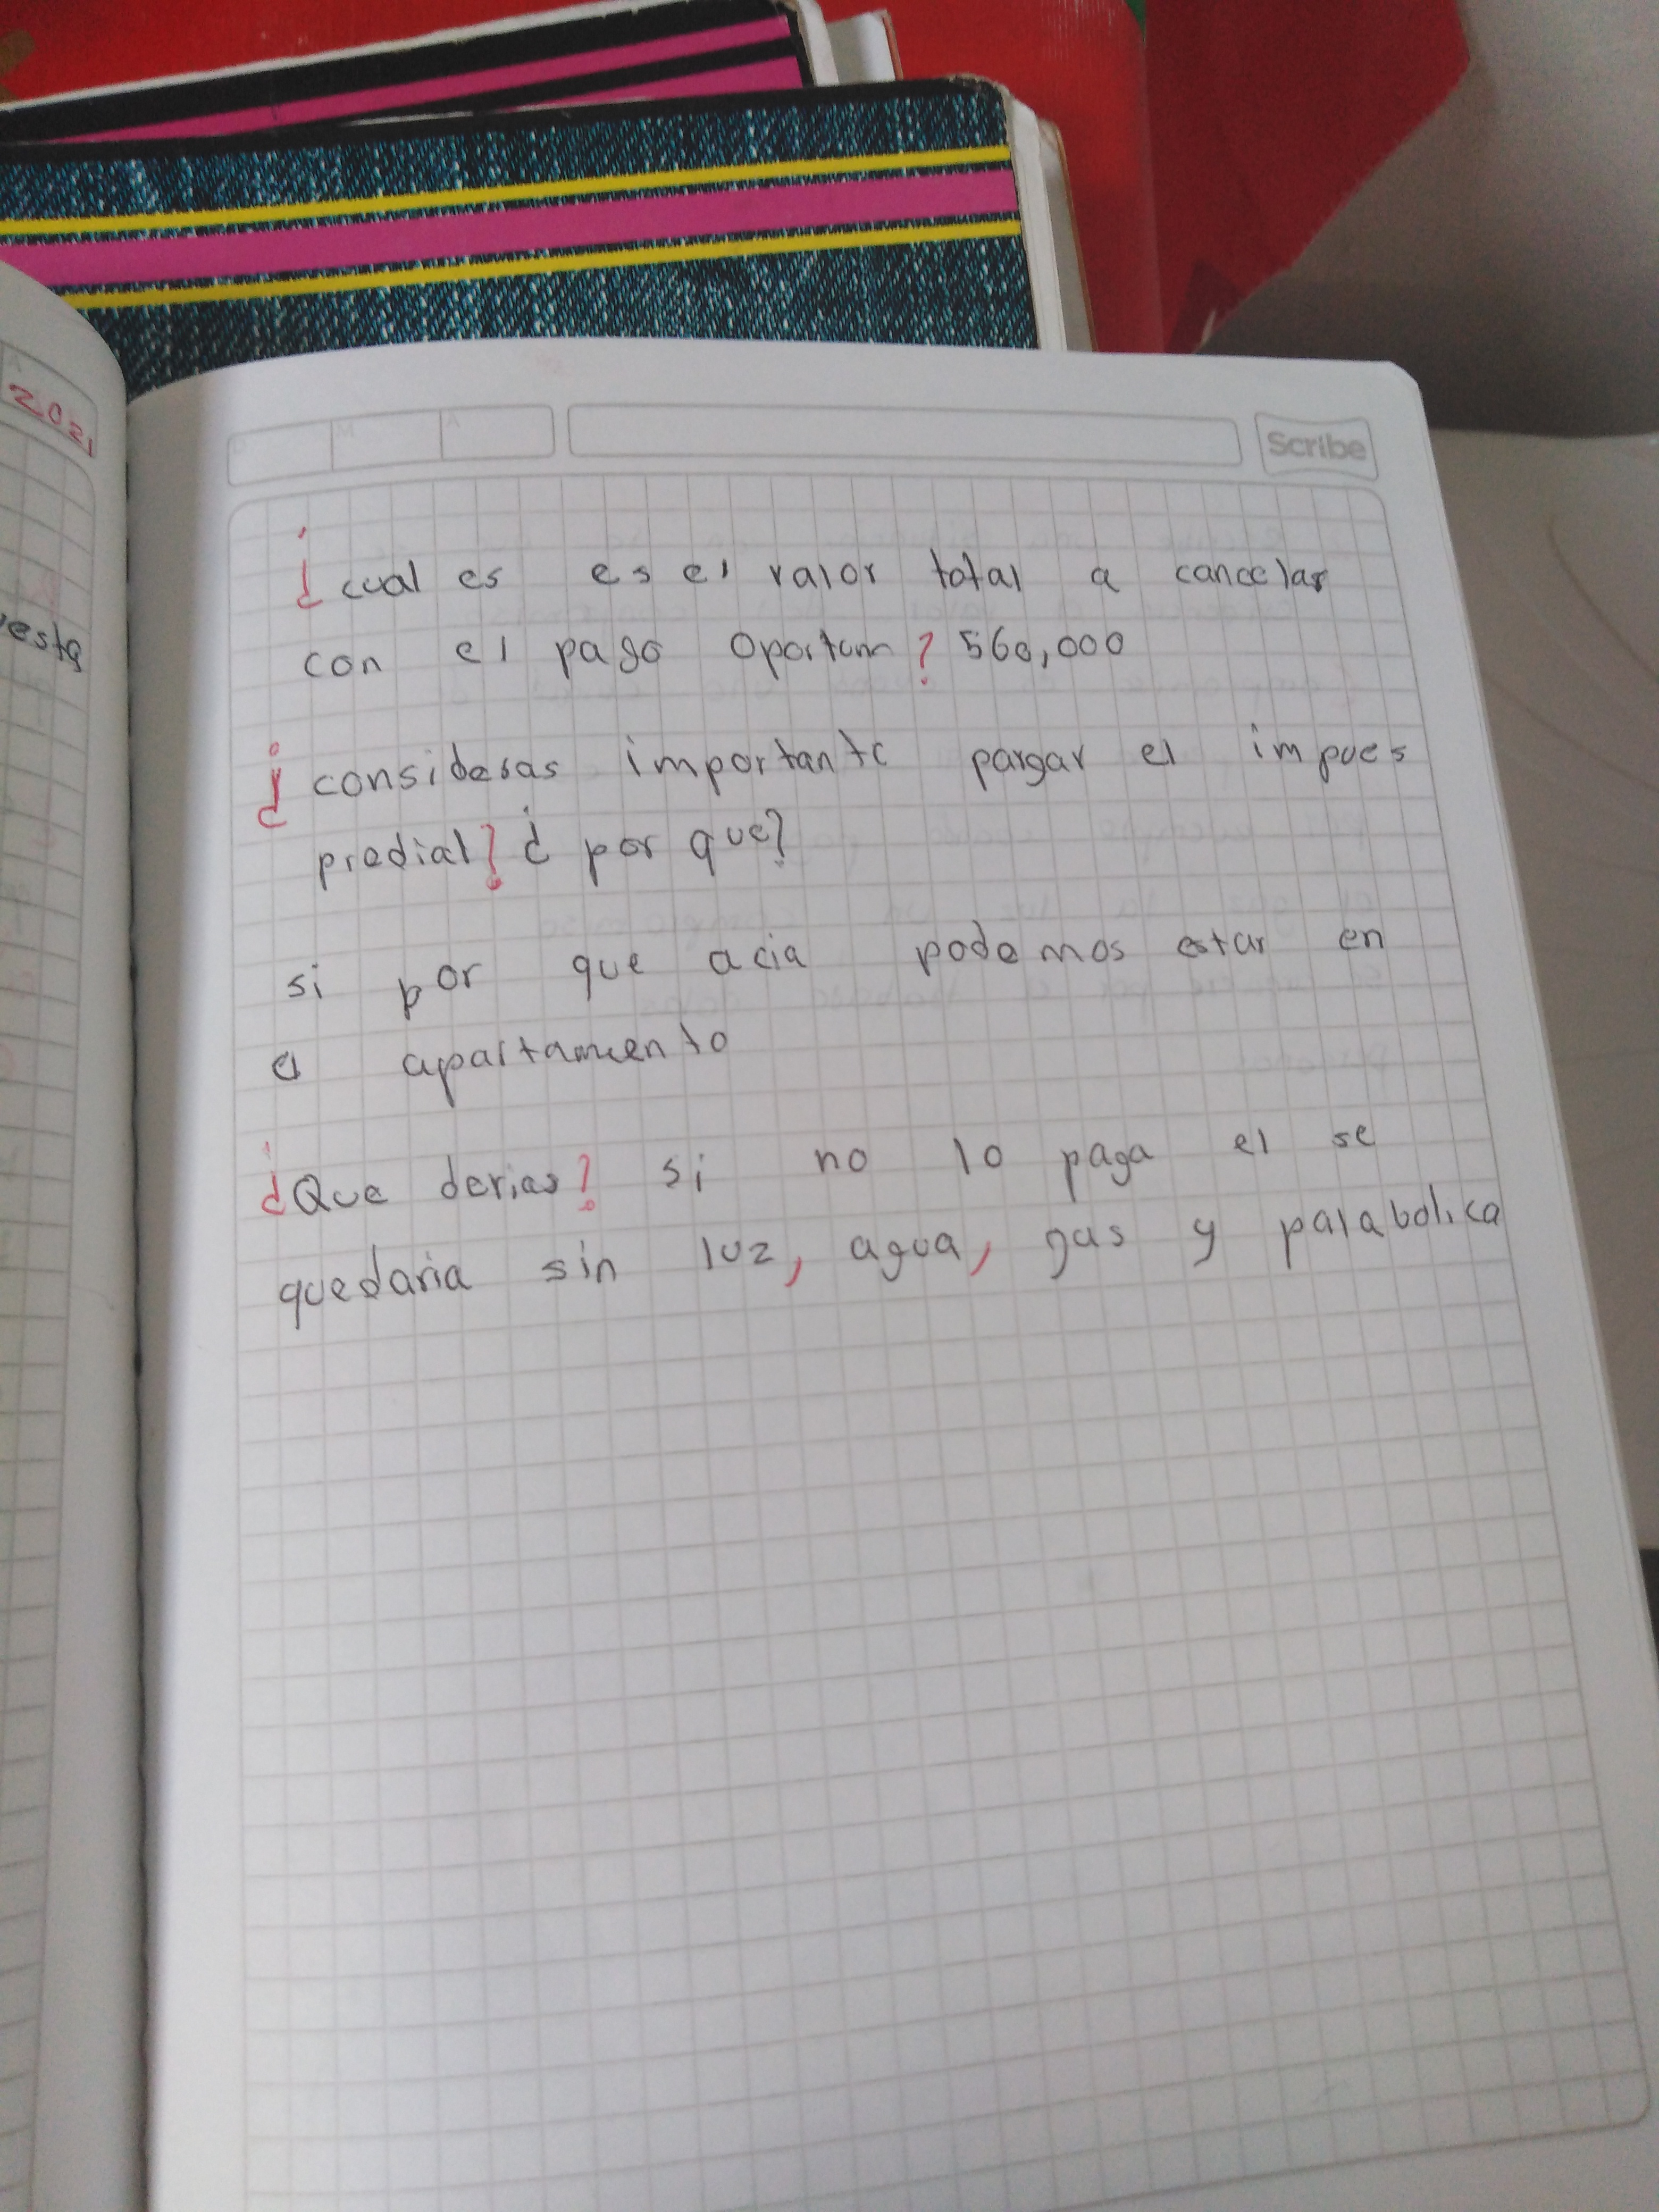 2021
Scribe
¿cual es es el valor total a cancelar
con el pago oportum? 560,000
¿consideras importante pargar el impues
predial? ¿por que?
si por que acia podemos estar en
el apartamento
¿Que derias? si no lo paga el se
quedaria sin luz, agua, gas y palabolica